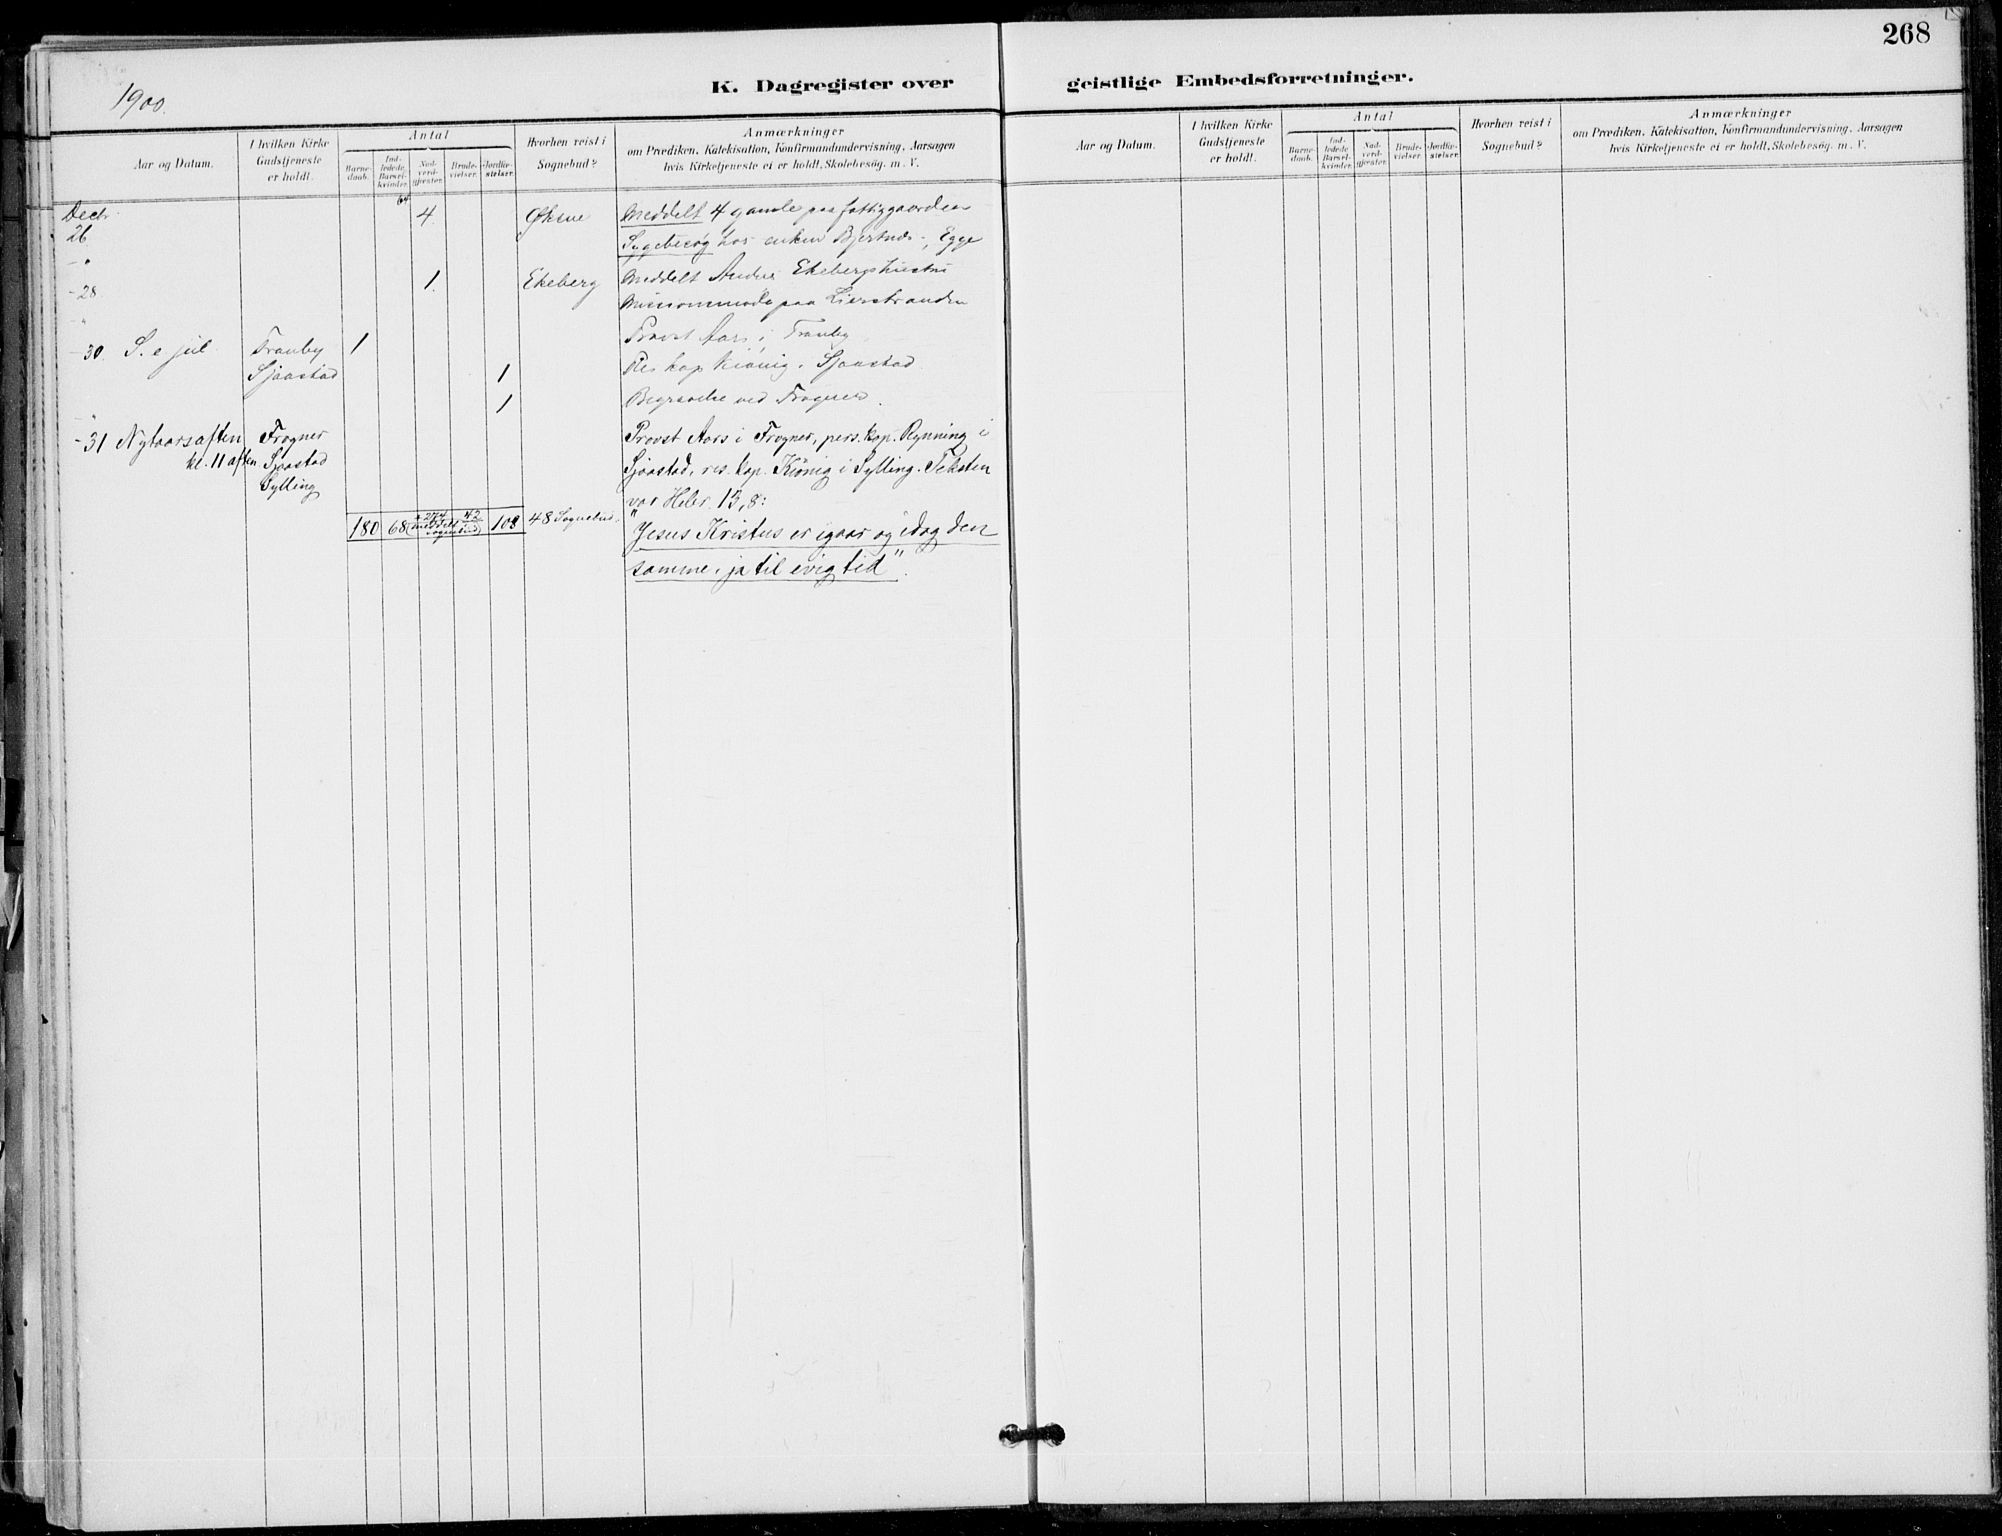 268
1900.
K. Dagregister over geistlige Embedsforretninger.
Aar og Datum.
I hvilken Kirke Gudstjeneste er holdt.
Antal
Barne-daab.
Ind-ledede Barsel-kvinder.
Nad-verd-gjester.
Brude-vielser.
Jordfæ-stelser.
Hvorhen reist i Sognebud?
Anmærkninger
om Prædiken, Katekisation, Konfirmandundervisning, Aarsagen
hvis Kirketjeneste ei er holdt, Skolebesög. m. V.
Decbr. 26 4. Øksne Meddelt 4 gamle paa fattiggaarden
Sygebesøg hos enken , Egge
-28 1. Ekeberg Meddelt Ekebergs hustru
Missionsmøde paa Lierstranden
-30. S. e jul Tranby 1 Provst Aars i Tranby
Sjaastad 1 Res kap Kiönig i Sjaastad
" 1 Begravelse ved Frogner.
-31 Nytaarsaften Frogner Provst Aars i Frogner, pers. kap. Rynning i
kl. 11 aften Sjaastad Sjåastad, res. kap. Kiönig i Sylling. Teksten
Sylling var Hebr. 13,8:
180 68 + 274 meddelt Sognebud 42 108 48 Sognebud. "Jesus Kristus er igaar og idag den
samme, ja til evig tid".
Aar og Datum.
I hvilken Kirke Gudstjeneste er holdt.
Antal
Barne-daab.
Ind-ledede Barsel-kvinder.
Nad-verd-gjester.
Brude-vielser.
Jordfæ-stelser.
Hvorhen reist i Sognebud?
Anmærkninger
om Prædiken, Katekisation, Konfirmandundervisning, Aarsagen
hvis Kirketjeneste ei er holdt, Skolebesög. m. V.